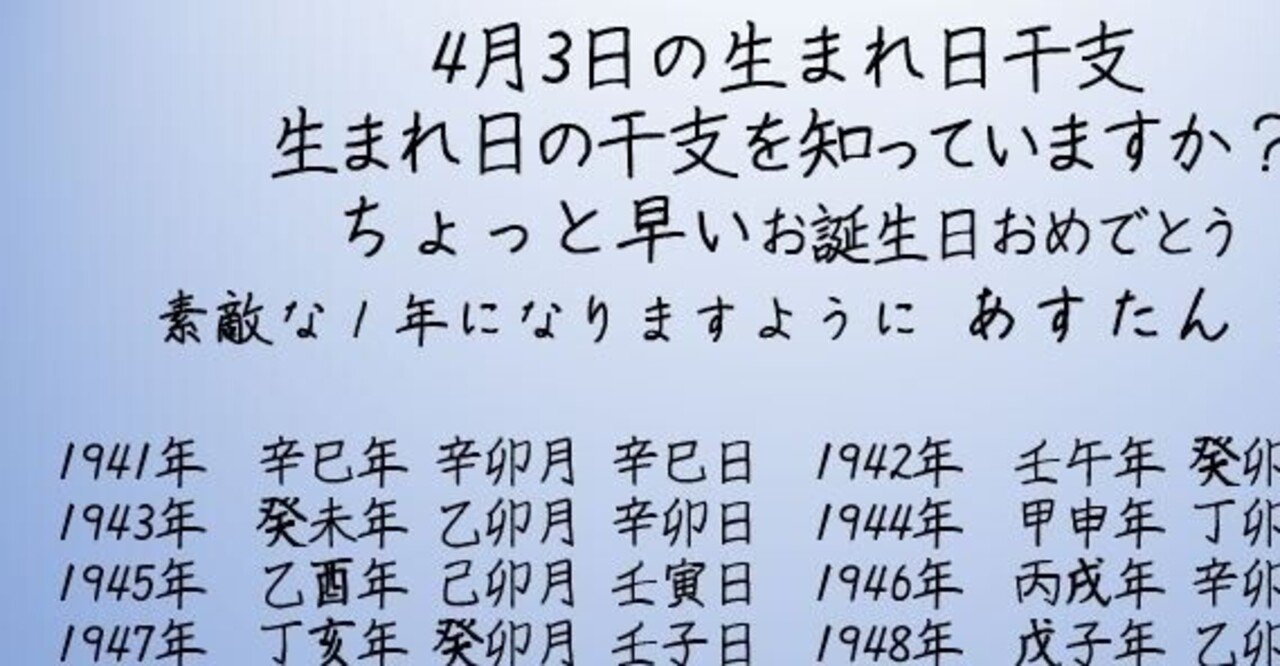 4月3日の生まれ日干支
生まれ日の干支を知っていますか？
ちょっと早いお誕生日おめでとう
素敵な1年になりますように あすたん
1941年 辛巳年 辛卯月 辛巳日 1942年 壬午年 癸卯
1943年 癸未年 乙卯月 辛卯日 1944年 甲申年 丁卯
1945年 乙酉年 己卯月 壬寅日 1946年 丙戌年 辛卯
1947年 丁亥年 癸卯月 壬子日 1948年 戊子年 乙卯